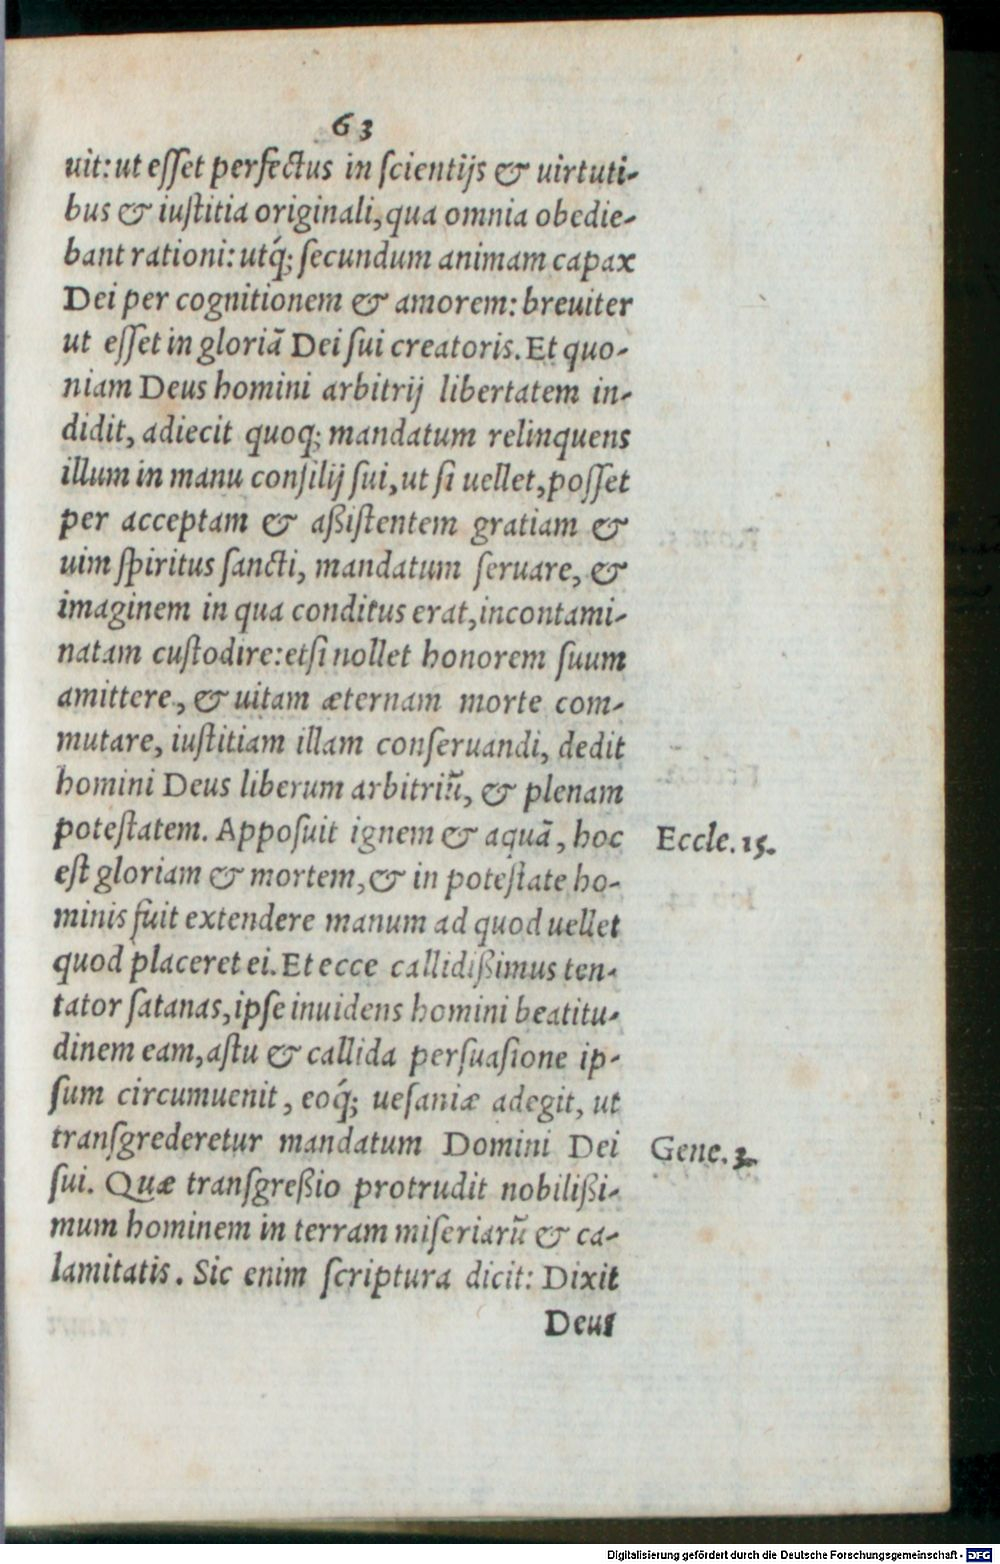 63
uit: ut eſſet perfectus in ſcientijs & uirtuti-
bus & iuſtitia originali, qua omnia obedie-
bant rationi: utq́; ſecundum animam capax
Dei per cognitionem & amorem: breuiter
ut eſſet in gloriā Dei ſui creatoris. Et quo-
niam Deus homini arbitrij libertatem in-
didit, adiecit quoq; mandatum relinquens
illum in manu conſilij ſui, ut ſi uellet, poſſet
per acceptam & aßiſtentem gratiam &
uim ſpiritus ſancti, mandatum ſeruare, &
imaginem in qua conditus erat, incontami-
natam cuſtodire: et ſi nollet honorem ſuum
amittere, & uitam æternam morte com-
mutare, iuſtitiam illam conſeruandi, dedit
homini Deus liberum arbitriū, & plenam
poteſtatem. Appoſuit ignem & aquā, hoc Eccle. 15.
eſt gloriam & mortem, & in poteſtate ho-
minis fuit extendere manum ad quod uellet
quod placeret ei. Et ecce callidißimus ten-
tator ſatanas, ipſe inuidens homini beatitu-
dinem eam, aſtu & callida perſuaſione ip-
ſum circumuenit, eoq́; ueſaniæ adegit, ut
tranſgrederetur mandatum Domini Dei Gene. 3.
ſui. Quæ tranſgreßio protrudit nobilißi-
mum hominem in terram miſeriarū & ca-
lamitatis. Sic enim ſcriptura dicit: Dixit
Deus
Digitalisierung gefördert durch die Deutsche Forschungsgemeinschaft - DFG